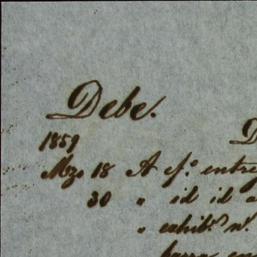 Debe.
1859
Mzo 18 A ef.º entre
30 " id id a
" exhib.n n.